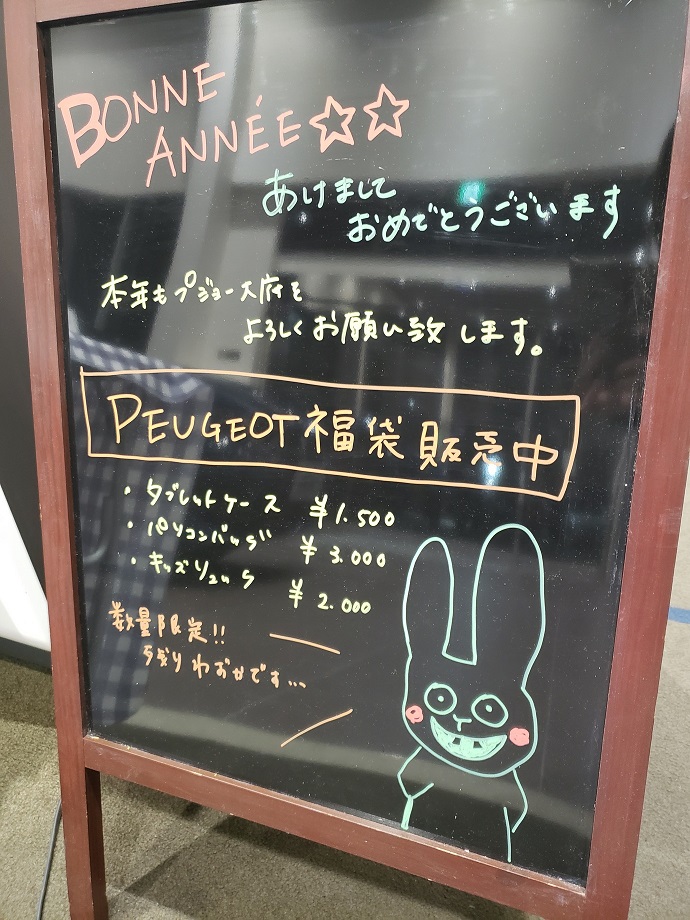 BONNE
ANNÉE☆☆
あけまして
おめでとうございます
本年もプジョー大府を
よろしくお願い致します。
PEUGEOT福袋販売中
・タブレットケース ¥1.500
・パソコンバッグ ¥3.000
・キッズリュック ¥2.000
数量限定!!
残りわずかです...